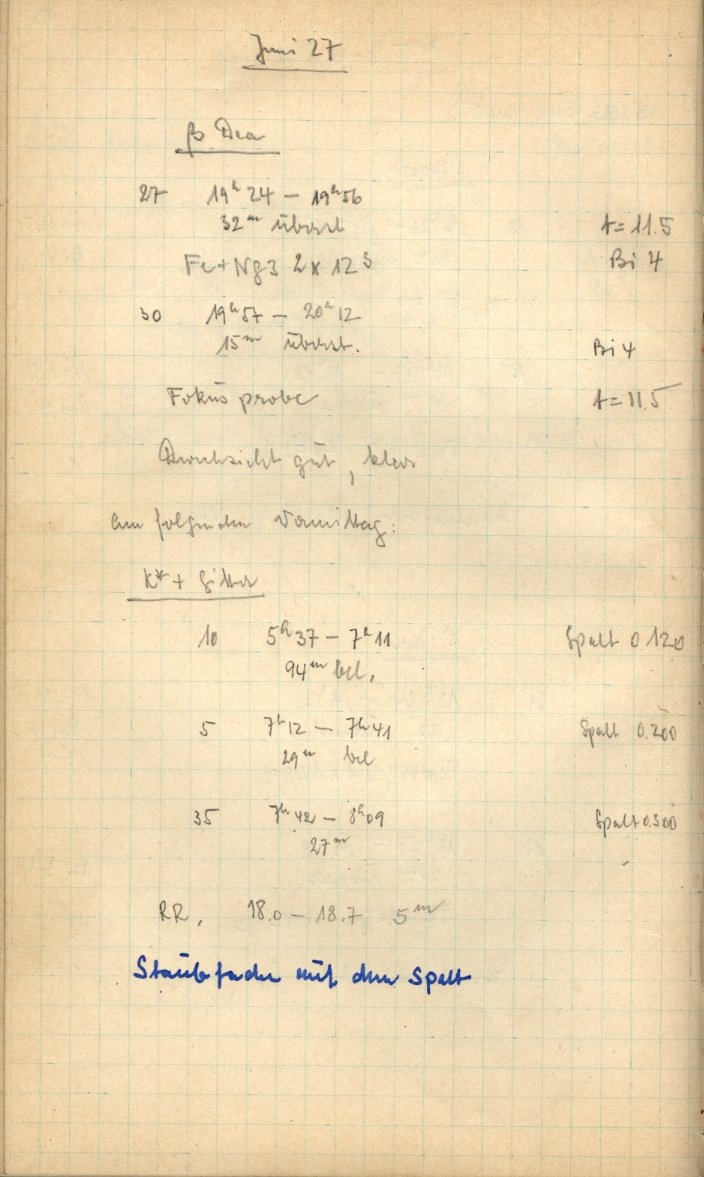 Juni 27
β Dra
27 19h 24 – 19h 56
32m überst t = 11.5
Fe + Ng3 2 x 12s Bi 4
30 19h 57 – 20h 12
15m überst. Bi 4
Fokusprobe t = 11.5
Durchsicht gut, klar
Am folgenden Vormittag:
K* + Gitter
10 5h 37 – 7h 11 Spalt 0.120
94m bel.
5 7h 12 – 7h 41 Spalt 0.200
29m bel
35 7h 42 – 8h 09 Spalt 0.300
27m
RR. 18.0 – 18.7 5m
Staubfaden auf dem Spalt